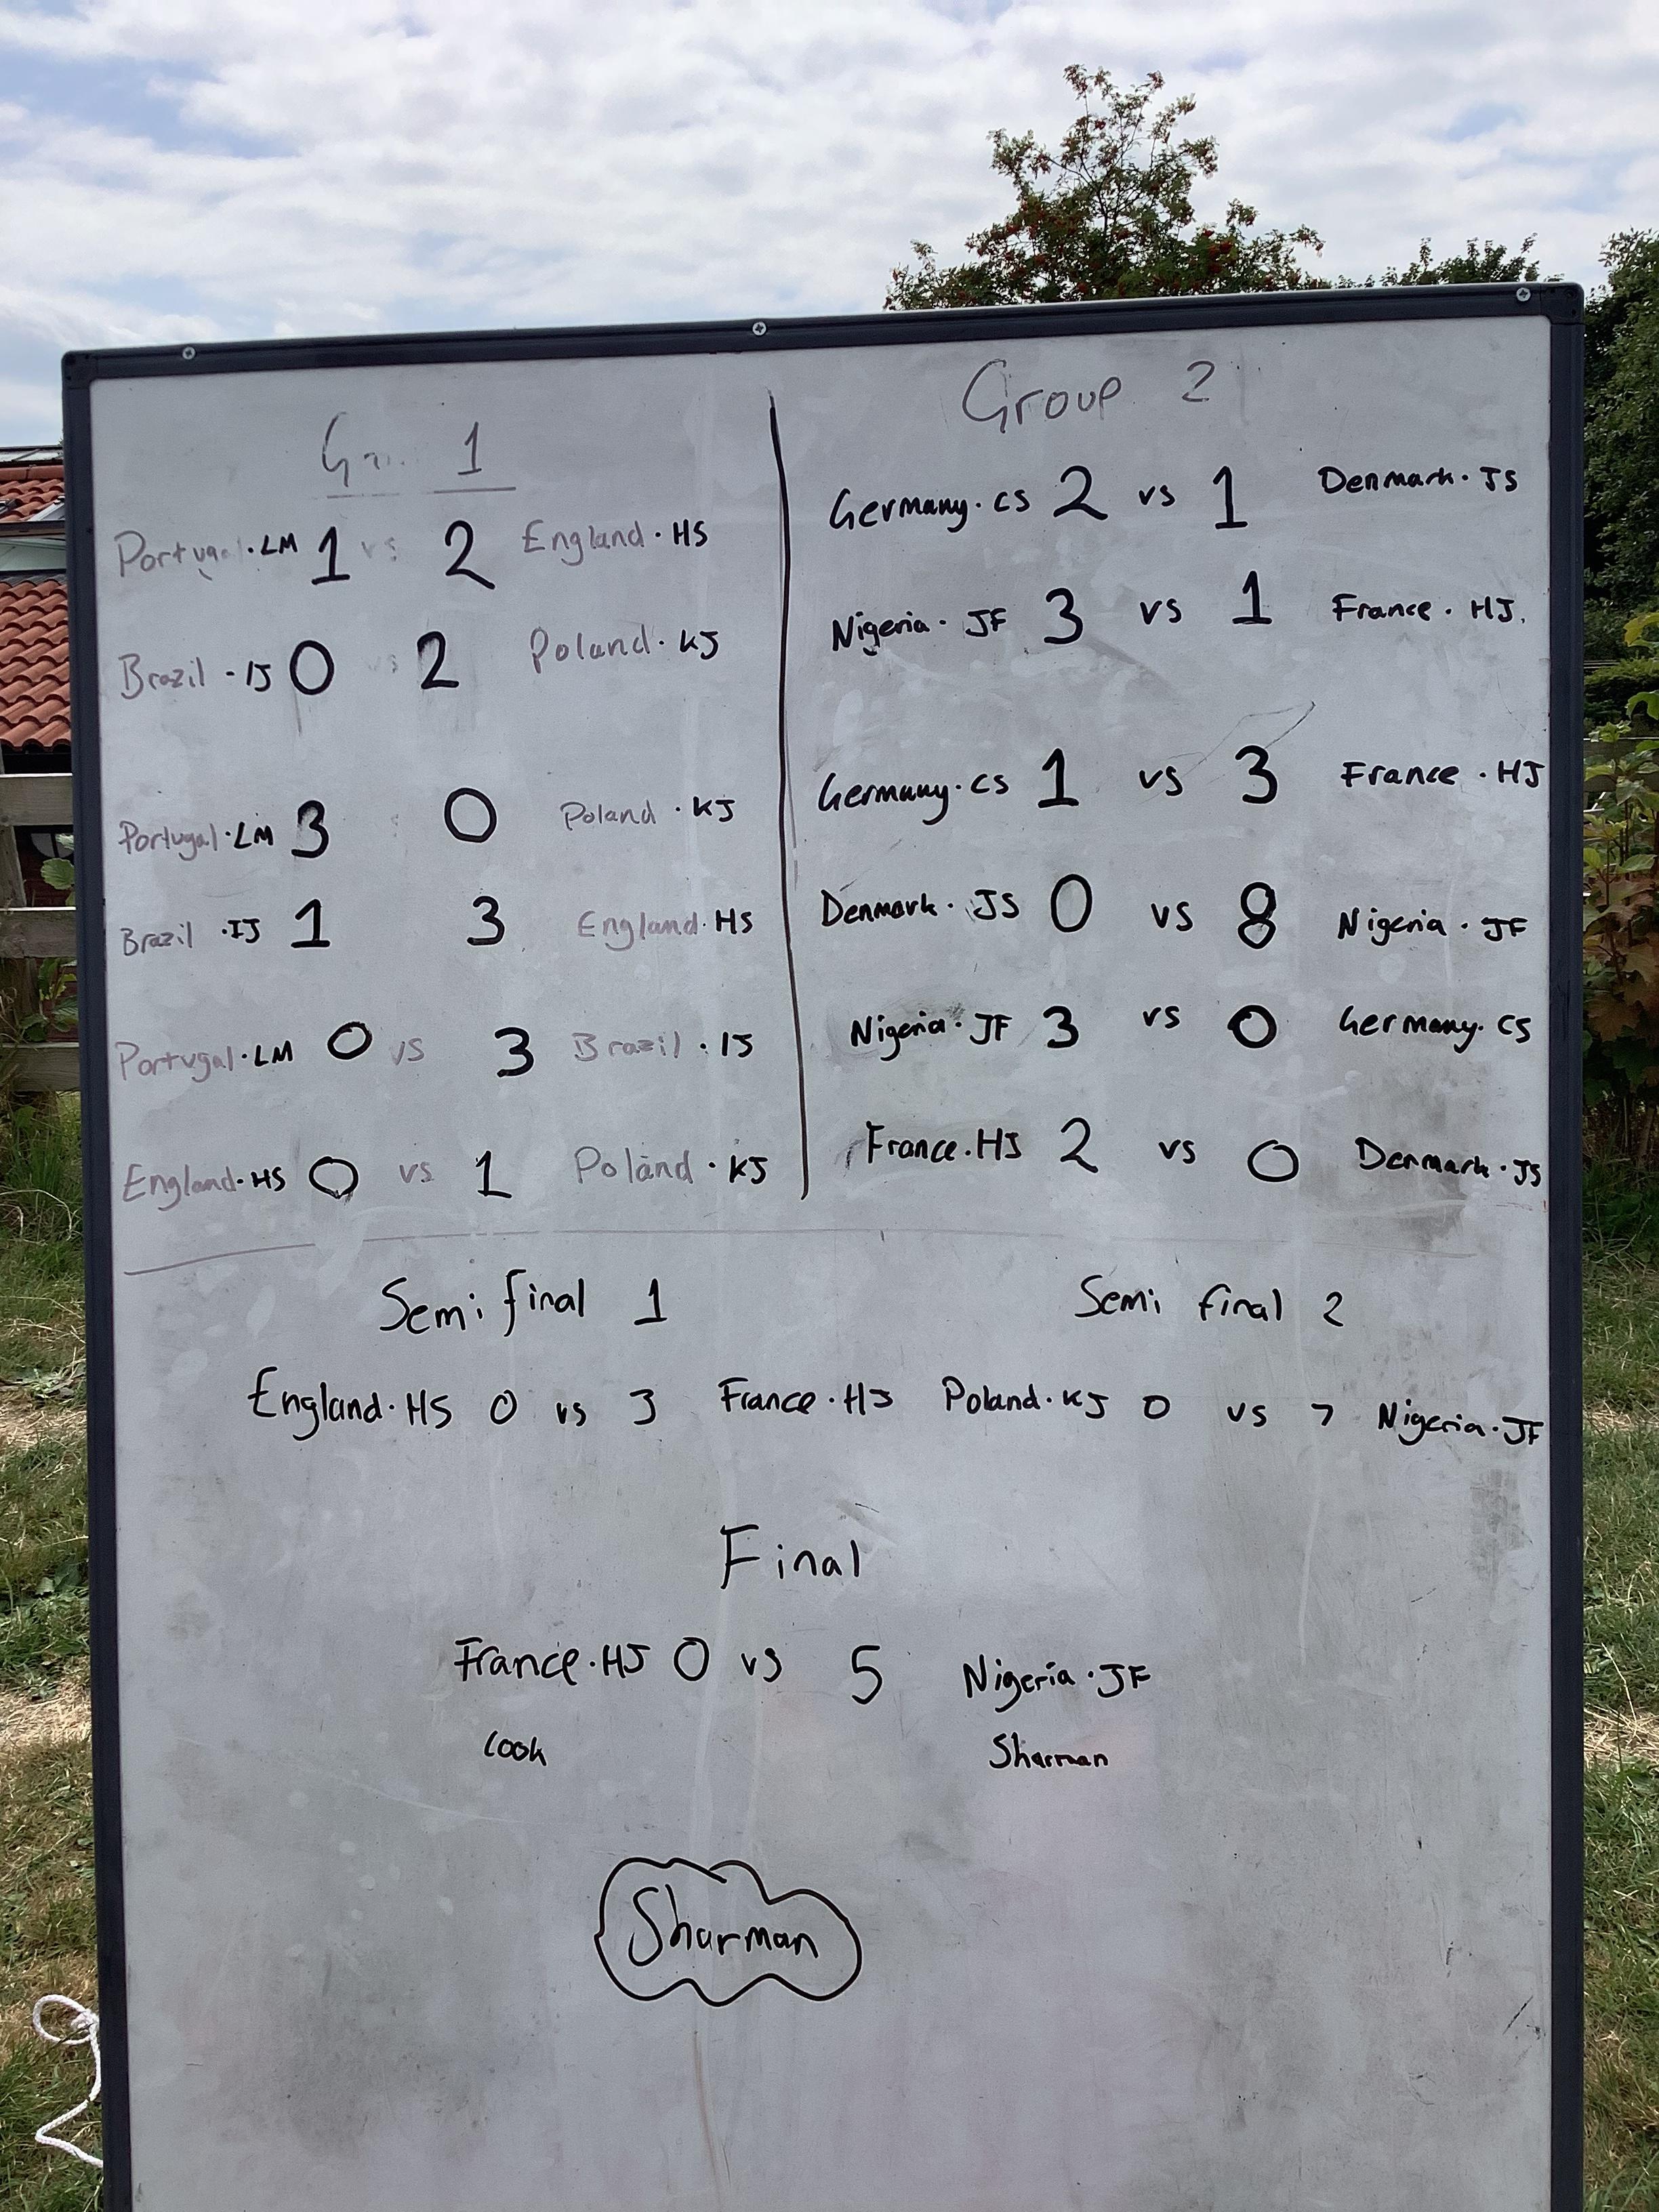 1
Portugal · LM 1 vs 2 England · HS
Brazil · IJ 0 vs 2 Poland · KJ
Portugal · LM 3 0 Poland · KJ
Brazil · IJ 1 3 England · HS
Portugal · LM 0 vs 3 Brazil · IJ
England · HS 0 vs 1 Poland · KJ
Group 2
Germany · CS 2 vs 1 Denmark · JS
Nigeria · JF 3 vs 1 France · HJ.
Germany · CS 1 vs 3 France · HJ
Denmark · JS 0 vs 8 Nigeria · JF
Nigeria · JF 3 vs 0 Germany · CS
France · HJ 2 vs 0 Denmark · JS
Semi final 1
England · HS 0 vs 3 France · HJ
Semi final 2
Poland · KJ 0 vs 7 Nigeria · JF
Final
France · HJ 0 vs 5 Nigeria · JF
Cook Sharman
Sharman